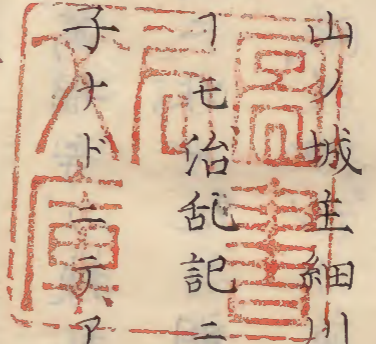 山ノ城主細川
ヿモ治乱記ニ
子ナドニテア